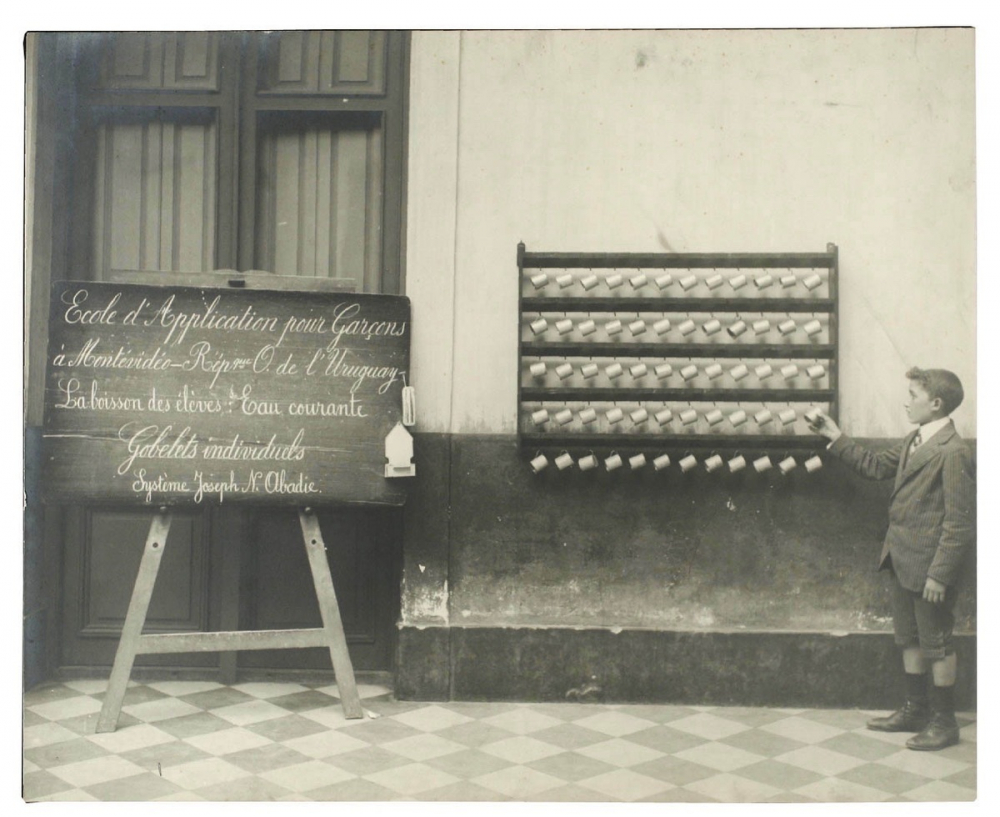 Ecole d'Application pour Garçons
à Montévidéo-Rép.que O. de l'Uruguay-
La boisson des élèves: de Eau courante
Gobelets individuels
Système Joseph N. Abadie.